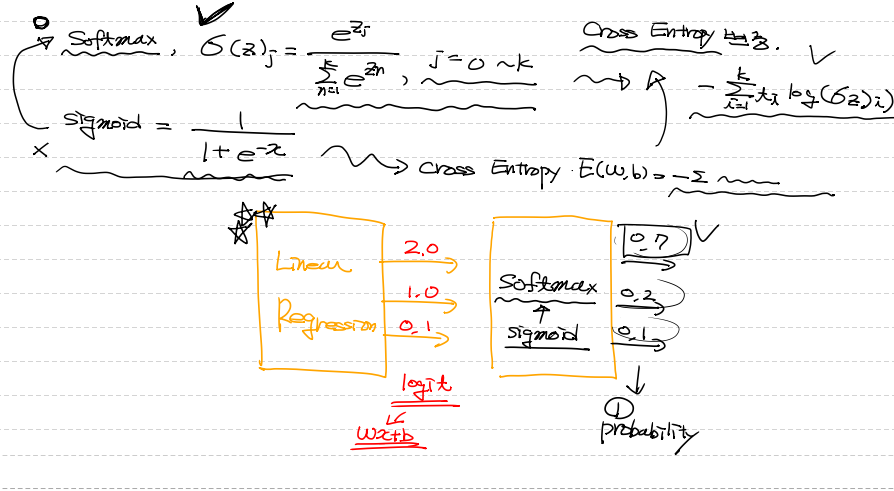 Softmax, σ(z)j = e^zj / Σ(n=1→k) e^zn, j = 0 ~ k
Cross Entropy
- Σ(i=1→k) ti log(σ(z)i)
sigmoid = 1 / (1 + e^-x)
Cross Entropy E(W,b) = -Σ
Linear
Regression
2.0
1.0
0.1
logit
Wx+b
Softmax
sigmoid
0.7
0.2
0.1
① probability